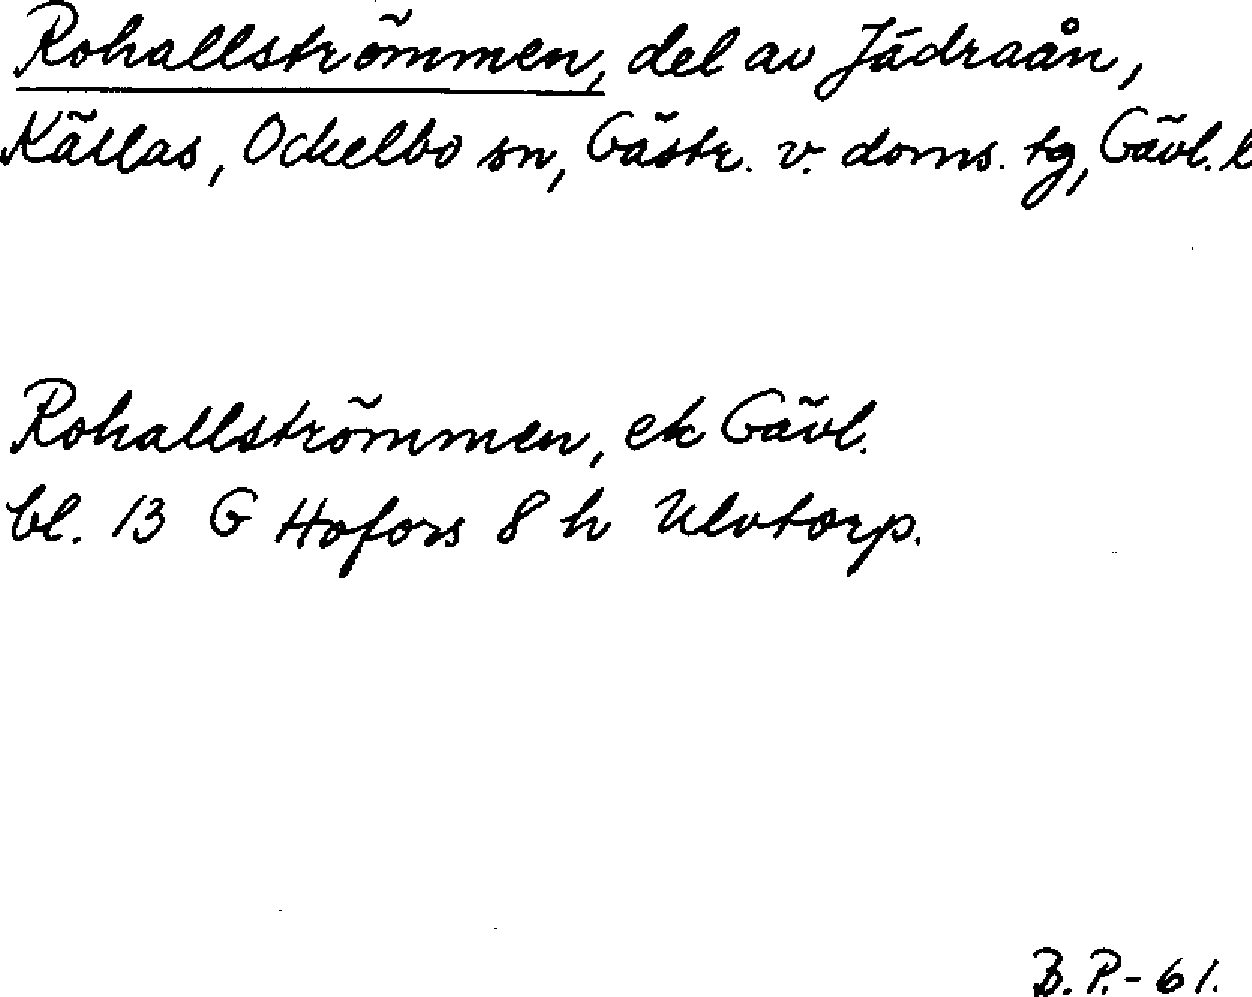 Rohallströmmen, del av Jädraån,
Källas, Ockelbo sn, Gästr. v. doms. tg, Gävl. l
Rohallströmmen, ek Gävl.
bl. 13 G Hofors 8 h Ulvtorp.
B. P. - 61.